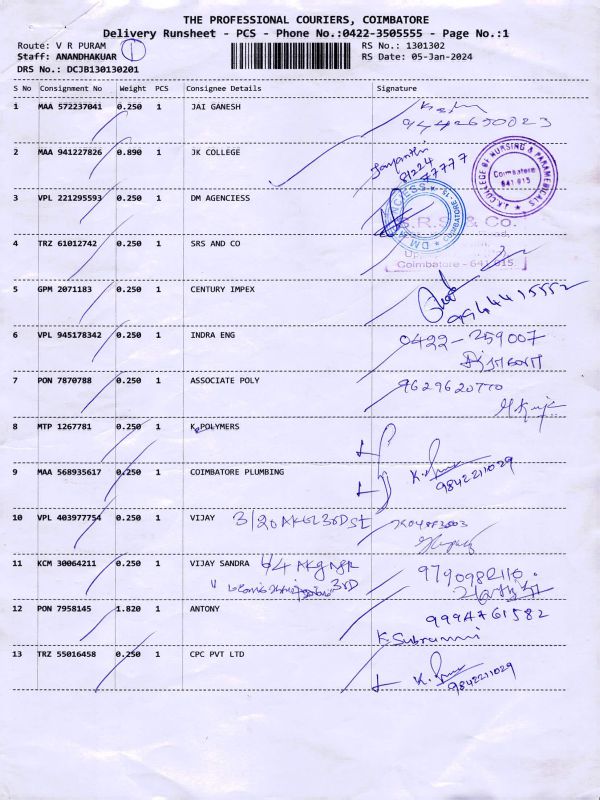 THE PROFESSIONAL COURIERS, COIMBATORE
Delivery Runsheet - PCS - Phone No.:0422-3505555 - Page No.:1
Route: V R PURAM 1 RS No.: 1301302
Staff: ANANDHAKUAR RS Date: 05-Jan-2024
DRS No.: DCJB130130201
S No Consignment No Weight PCS Consignee Details Signature
1 MAA 572237041 0.250 1 JAI GANESH
9442650023
2 MAA 941227826 0.890 1 JK COLLEGE Jayanthi
81224
77777
J.K. COLLEGE OF NURSING & PARAMEDICALS
Coimbatore
641 015
3 VPL 221295593 0.250 1 DM AGENCIESS
DM AGENCIESS COIMBATORE-15
S.R.S. & Co.
4 TRZ 61012742 0.250 1 SRS AND CO
Coimbatore - 641 015.
5 GPM 2071183 0.250 1 CENTURY IMPEX
6 VPL 945178342 0.250 1 INDRA ENG 0422-259007
7 PON 7870788 0.250 1 ASSOCIATE POLY 9629620770
8 MTP 1267781 0.250 1 K POLYMERS
9 MAA 568935617 0.250 1 COIMBATORE PLUMBING
9842211029
10 VPL 403977754 0.250 1 VIJAY 3/20 AKG 3RD St
11 KCM 30064211 0.250 1 VIJAY SANDRA 64 AKG NGR
3RD
12 PON 7958145 1.820 1 ANTONY 9994761582
K. Subramani
13 TRZ 55016458 0.250 1 CPC PVT LTD
9842211029